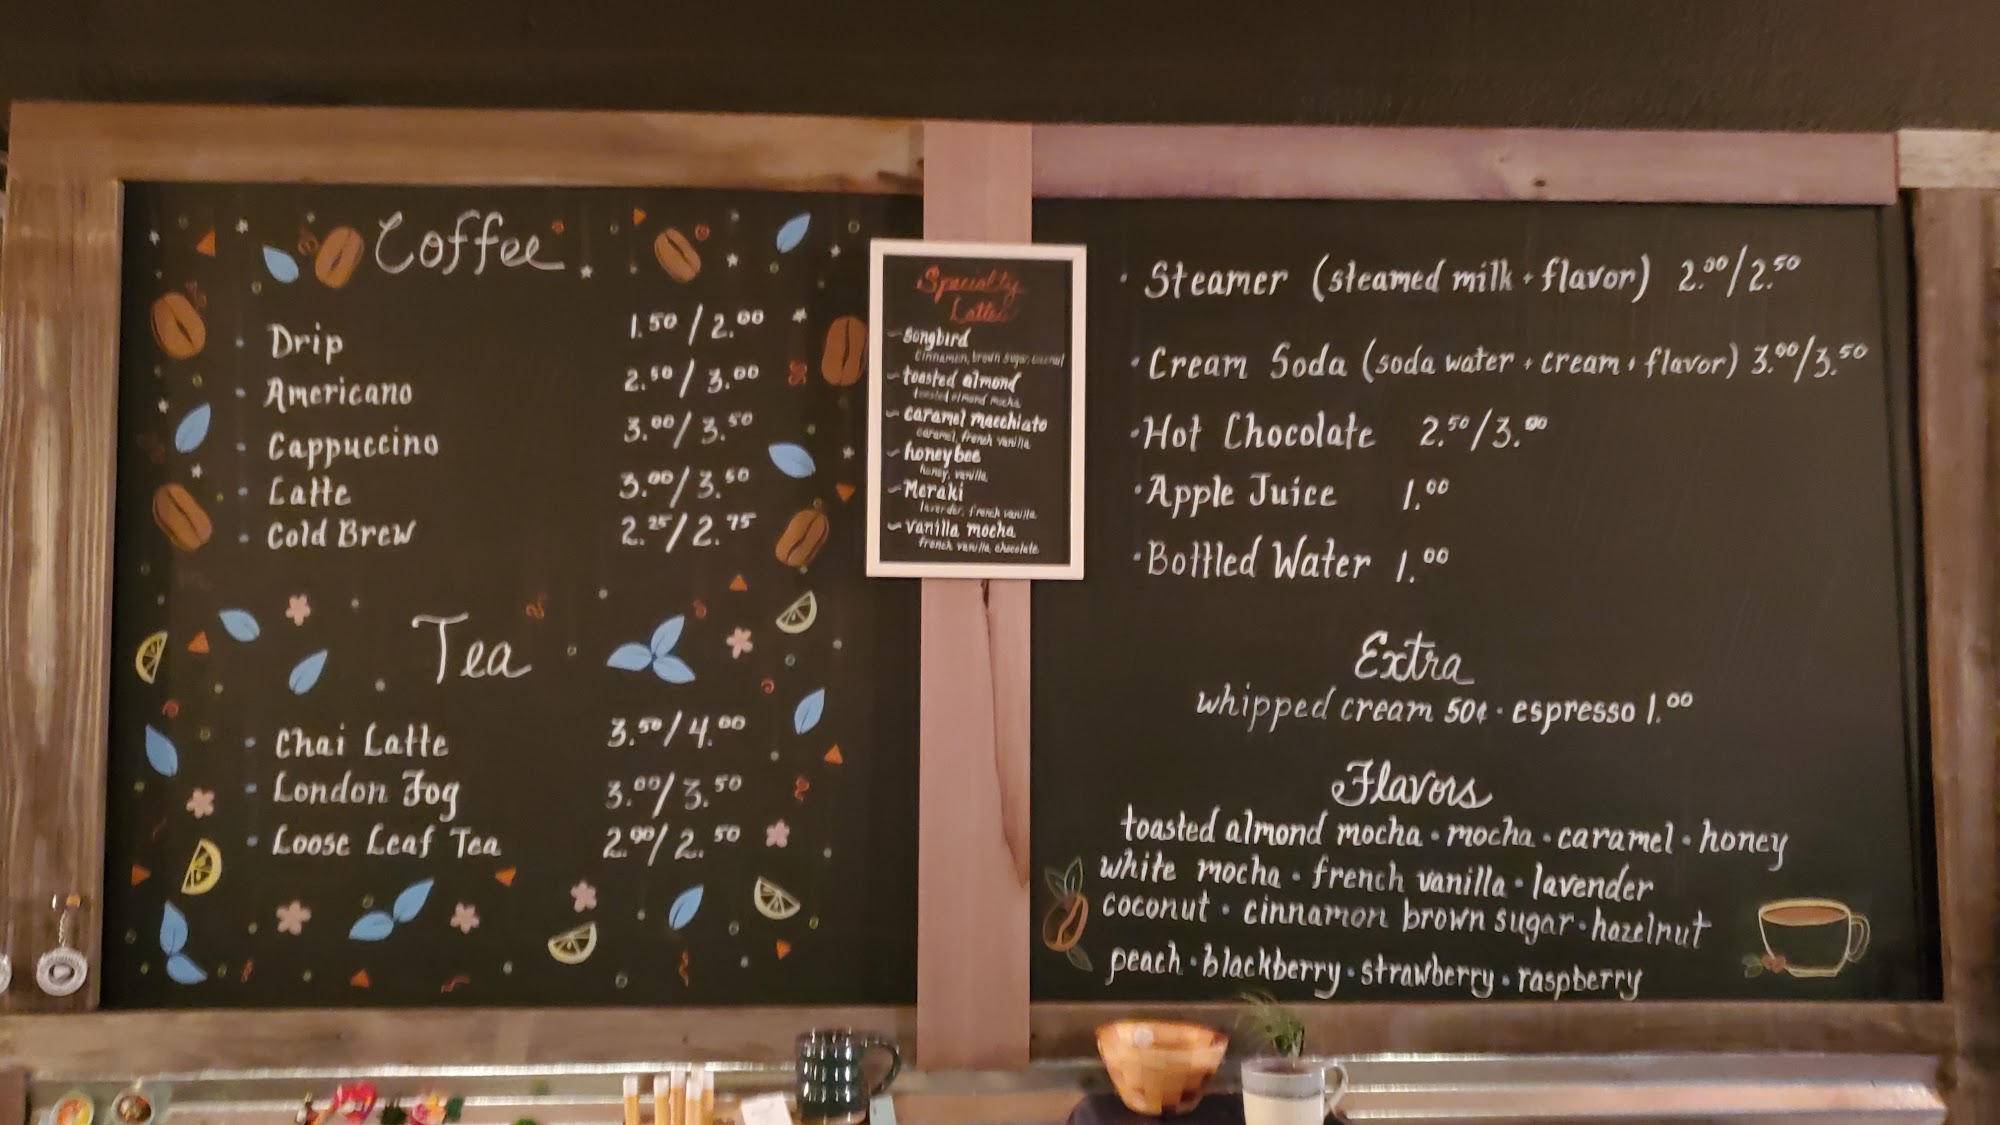 Coffee
• Drip 1.50 / 2.00
• Americano 2.50 / 3.00
• Cappuccino 3.00 / 3.50
• Latte 3.00 / 3.50
• Cold Brew 2.25 / 2.75
Tea
• Chai Latte 3.50 / 4.00
• London Fog 3.00 / 3.50
• Loose Leaf Tea 2.00 / 2.50
Specialty
Lattes
~ songbird
cinnamon, brown sugar,
~ toasted almond
toasted almond mocha
~ caramel macchiato
caramel, french vanilla
~ honeybee
honey, vanilla
~ Meraki
lavender, french vanilla
~ vanilla mocha
french vanilla, chocolate
• Steamer (steamed milk + flavor) 2.00/2.50
• Cream Soda (soda water + cream + flavor) 3.00/3.50
• Hot Chocolate 2.50/3.00
• Apple Juice 1.00
• Bottled Water 1.00
Extra
whipped cream 50¢ • espresso 1.00
Flavors
toasted almond mocha • mocha • caramel • honey
white mocha • french vanilla • lavender
coconut • cinnamon brown sugar • hazelnut
peach • blackberry • strawberry • raspberry